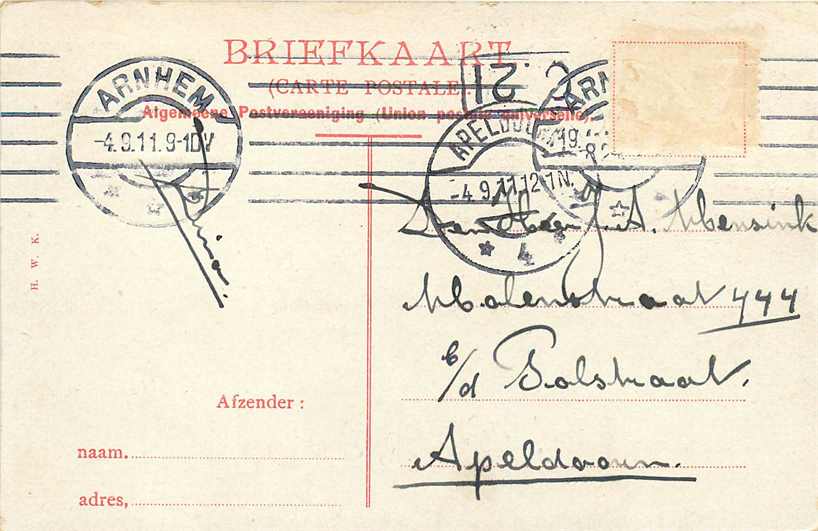 BRIEFKAART
(CARTE POSTALE)
Algemeene Postvereeniging (Union postale universelle)
ARNHEM
-4.9.11.9-10V
21
ARN
APELDOORN
-4.9.11.12-1N.
4
den Heer A. Mensink
Molenstraat 444
b/d Bolstraat.
Apeldoorn.
H. W. K.
Afzender :
naam.
adres,